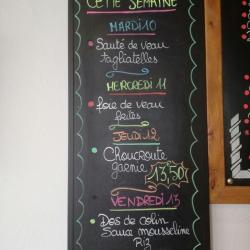 CETTE SEMAINE
MARDI 10
Sauté de veau
tagliatelles
MERCREDI 11
foie de veau
frites
JEUDI 12
Choucroute
garnie
13,50
VENDREDI 13
Dos de colin
Sauce mousseline
Riz